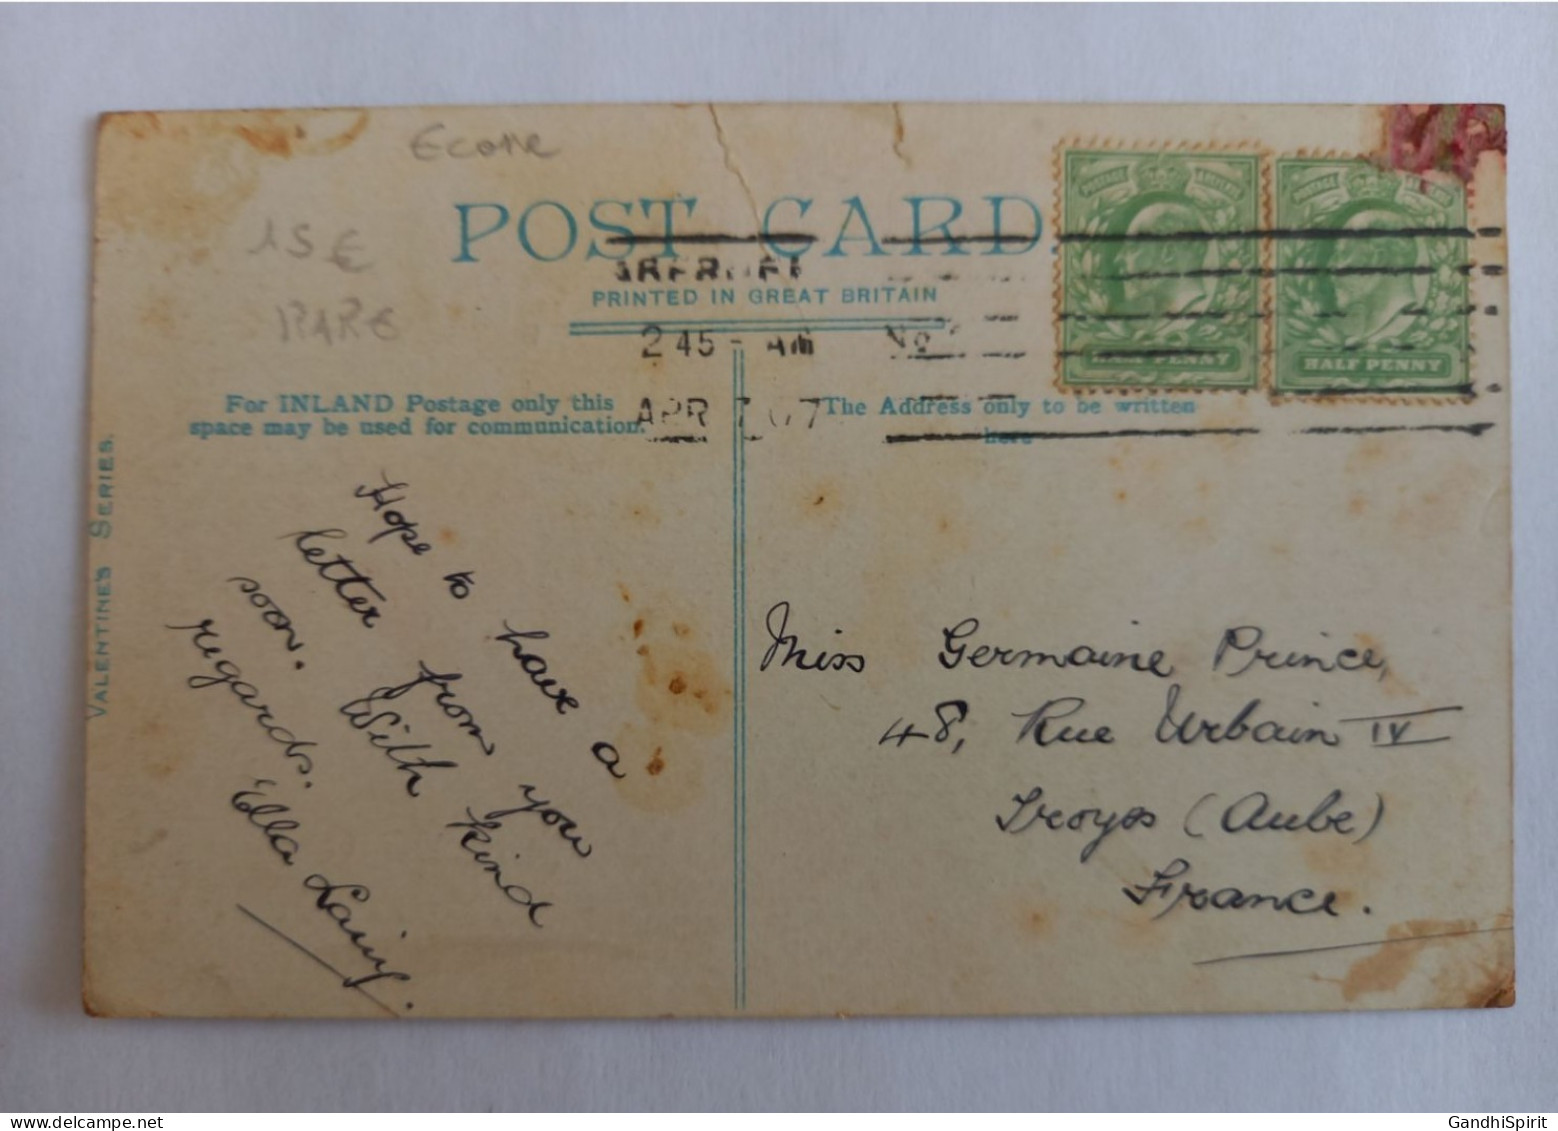 POST CARD
PRINTED IN GREAT BRITAIN
2 45 - AM
APR 7 07
HALF PENNY
HALF PENNY
For INLAND Postage only this
space may be used for communication.
The Address only to be written
here
VALENTINE'S SERIES.
15 €
RARE
Hope to have a
letter from you
soon. With kind
regards.
Ella Laing.
Miss Germaine Prince,
48, Rue Urbain IV
Troyes (Aube)
France.
GandhiSpirit